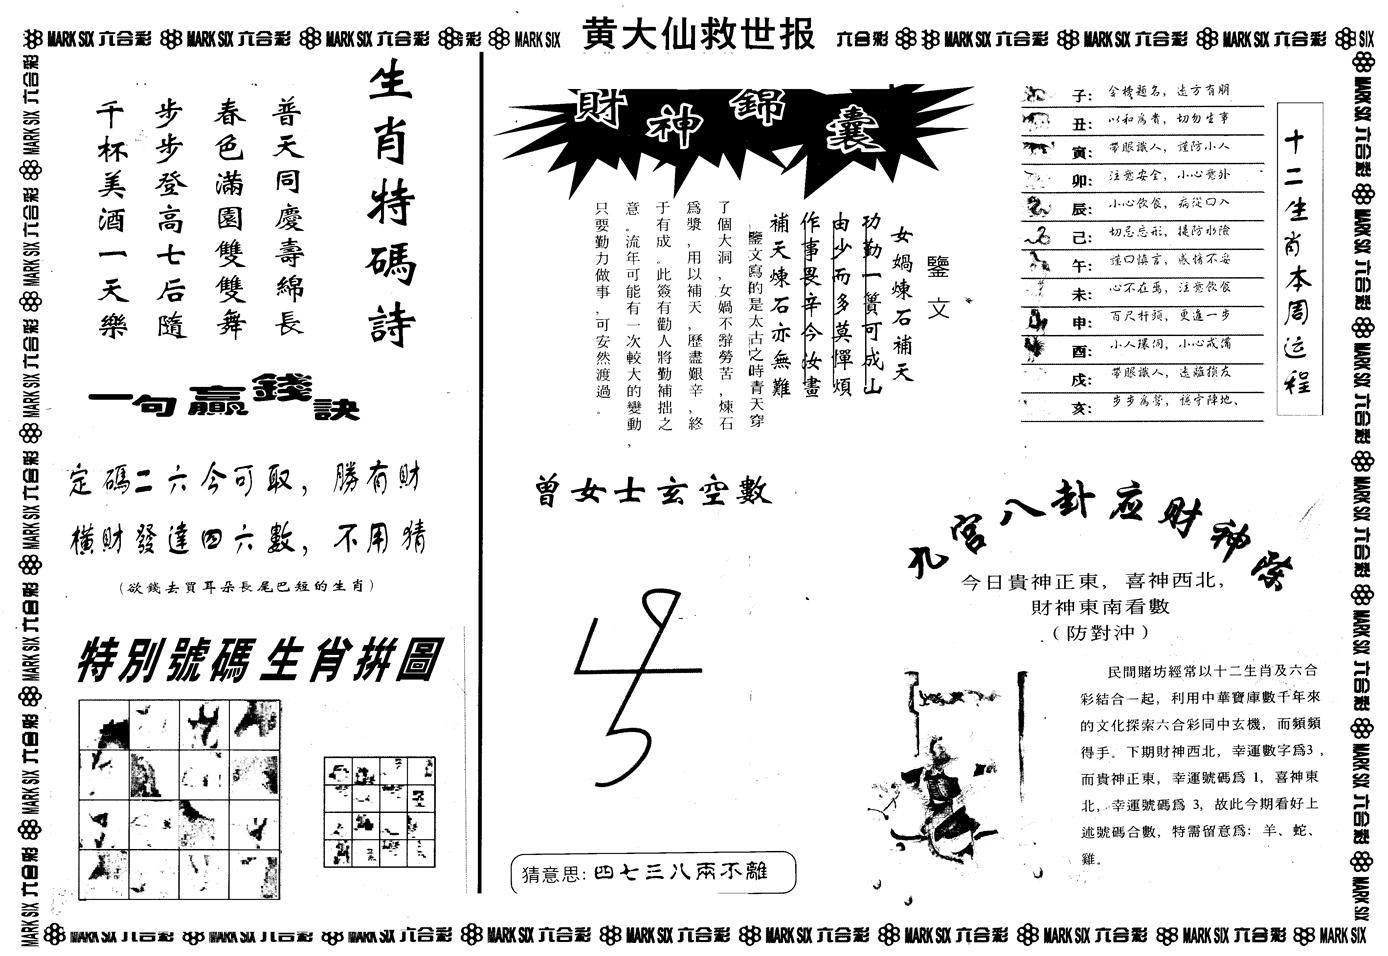 黄大仙救世报
MARK SIX 六合彩
生肖特碼詩
普天同慶壽綿長
春色滿園雙雙舞
步步登高七后隨
千杯美酒一天樂
一句贏錢訣
定碼二六今可取，勝有財
橫財發達四六數，不用猜
（欲錢去買耳朵長尾巴短的生肖）
特別號碼生肖拼圖
財神錦囊
鑒文
女媧煉石補天
功勤一簣可成山
由少而多莫憚煩
作事畏辛今汝畫
補天煉石亦無難
鑒文寫的是太古之時青天穿
了個大洞,女媧不辭勞苦,煉石
爲漿,用以補天,歷盡艱辛,終
于有成。此簽有勸人將勤補拙之
意。流年可能有一次較大的變動,
只要勤力做事,可安然渡過。
曾女士玄空數
猜意思:四七三八兩不離
十二生肖本周运程
子：金榜題名，遠方有朋
丑：以和爲貴，切勿生事
寅：帶眼識人，謹防小人
卯：注意安全，小心意外
辰：小心飲食，病從口入
己：切忌忘形，提防水險
午：謹口慎言，感情不妥
未：心不在焉，注意飲食
申：百尺杆頭，更進一步
酉：小人環伺，小心戒備
戌：帶眼識人，遠離損友
亥：步步爲營，穩守陣地、
九宮八卦应财神除
今日貴神正東，喜神西北，
財神東南看數
（防對沖）
民間賭坊經常以十二生肖及六合
彩結合一起，利用中華寶庫數千年來
的文化探索六合彩同中玄機，而頻頻
得手。下期財神西北，幸運數字爲3，
而貴神正東，幸運號碼爲 1，喜神東
北，幸運號碼爲 3，故此今期看好上
述號碼合數，特需留意爲：羊、蛇、
雞。